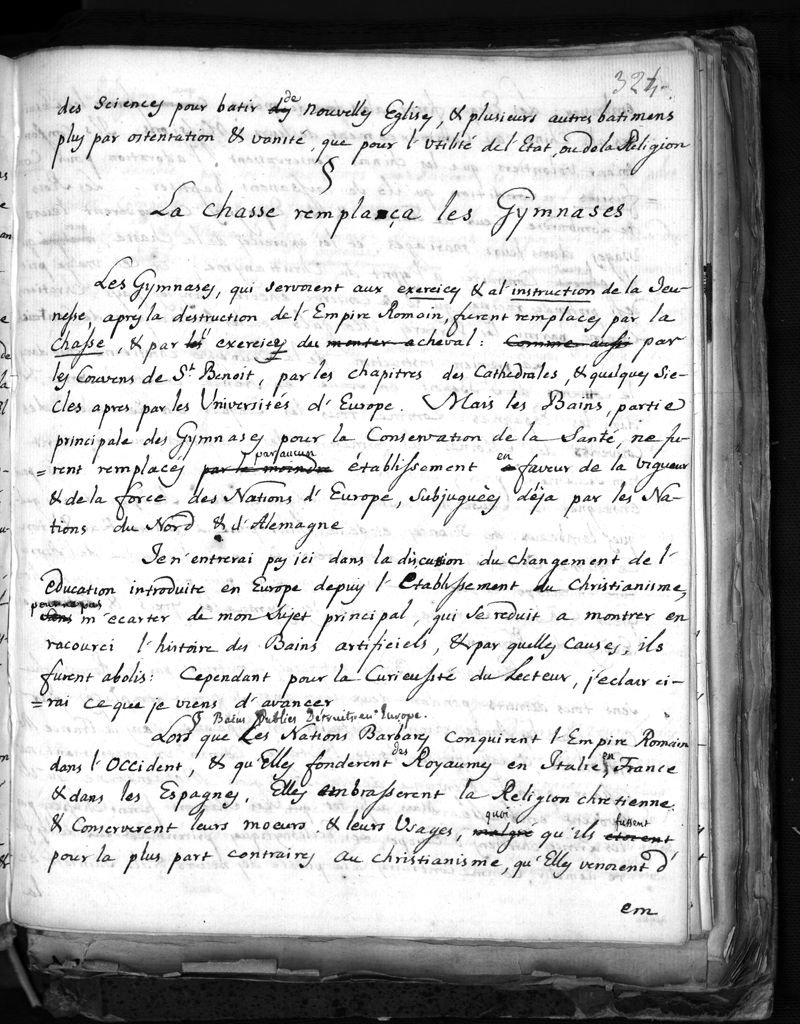 324.
des Sciences pour batir des de nouvelles Eglises, & plusieurs autres batimens
plus par ostentation & vanité, que pour l'Utilité de l'Etat, ou de la Religion
§
La chasse remplaça les Gymnases
Les Gymnases, qui servoient aux exercices & a l'instruction de la Jeu-
nesse apres la destruction de l'Empire Romain, furent remplaces par la
chasse, & par les exercices du monter a cheval: Comme aussi par
les Couvens de St. Benoit, par les chapitres des Cathedrales, & quelques Sie-
cles apres par les Universités d'Europe. Mais les Bains, partie
principale des Gymnases pour la Conservation de la Santé, ne fu-
par aucun en
=rent remplaces par le moindre établissement a faveur de la vigueur
& de la force des Nations d'Europe, Subjuguées déja par les Na-
tions du Nord & d'Alemagne
Je n'entrerai pas ici dans la discution du changement de l'
education introduite en Europe depuis l'Etablissement du Christianisme,
pour ne pas
sans m'ecarter de mon Sujet principal, qui se reduit a montrer en
racourci l'histoire des Bains artificiels, & par quelles Causes, ils
furent abolis: Cependant pour la Curieusité du Lecteur, j'eclair ci-
=rai ce que je viens d'avancer
§ Bains Publics Détruits en Europe.
Lors que Les Nations Barbares conquirent l'Empire Romain
des en
dans l'Occident, & qu'Elles fonderent Royaumes en Italie, France
& dans les Espagnes, Elles embrasserent la Religion chretienne
quoi fussent
& Conserverent leurs moeurs & leurs Usages, malgré qu'ils etoient
pour la plus part contraires au christianisme, qu'Elles venoient d'
em